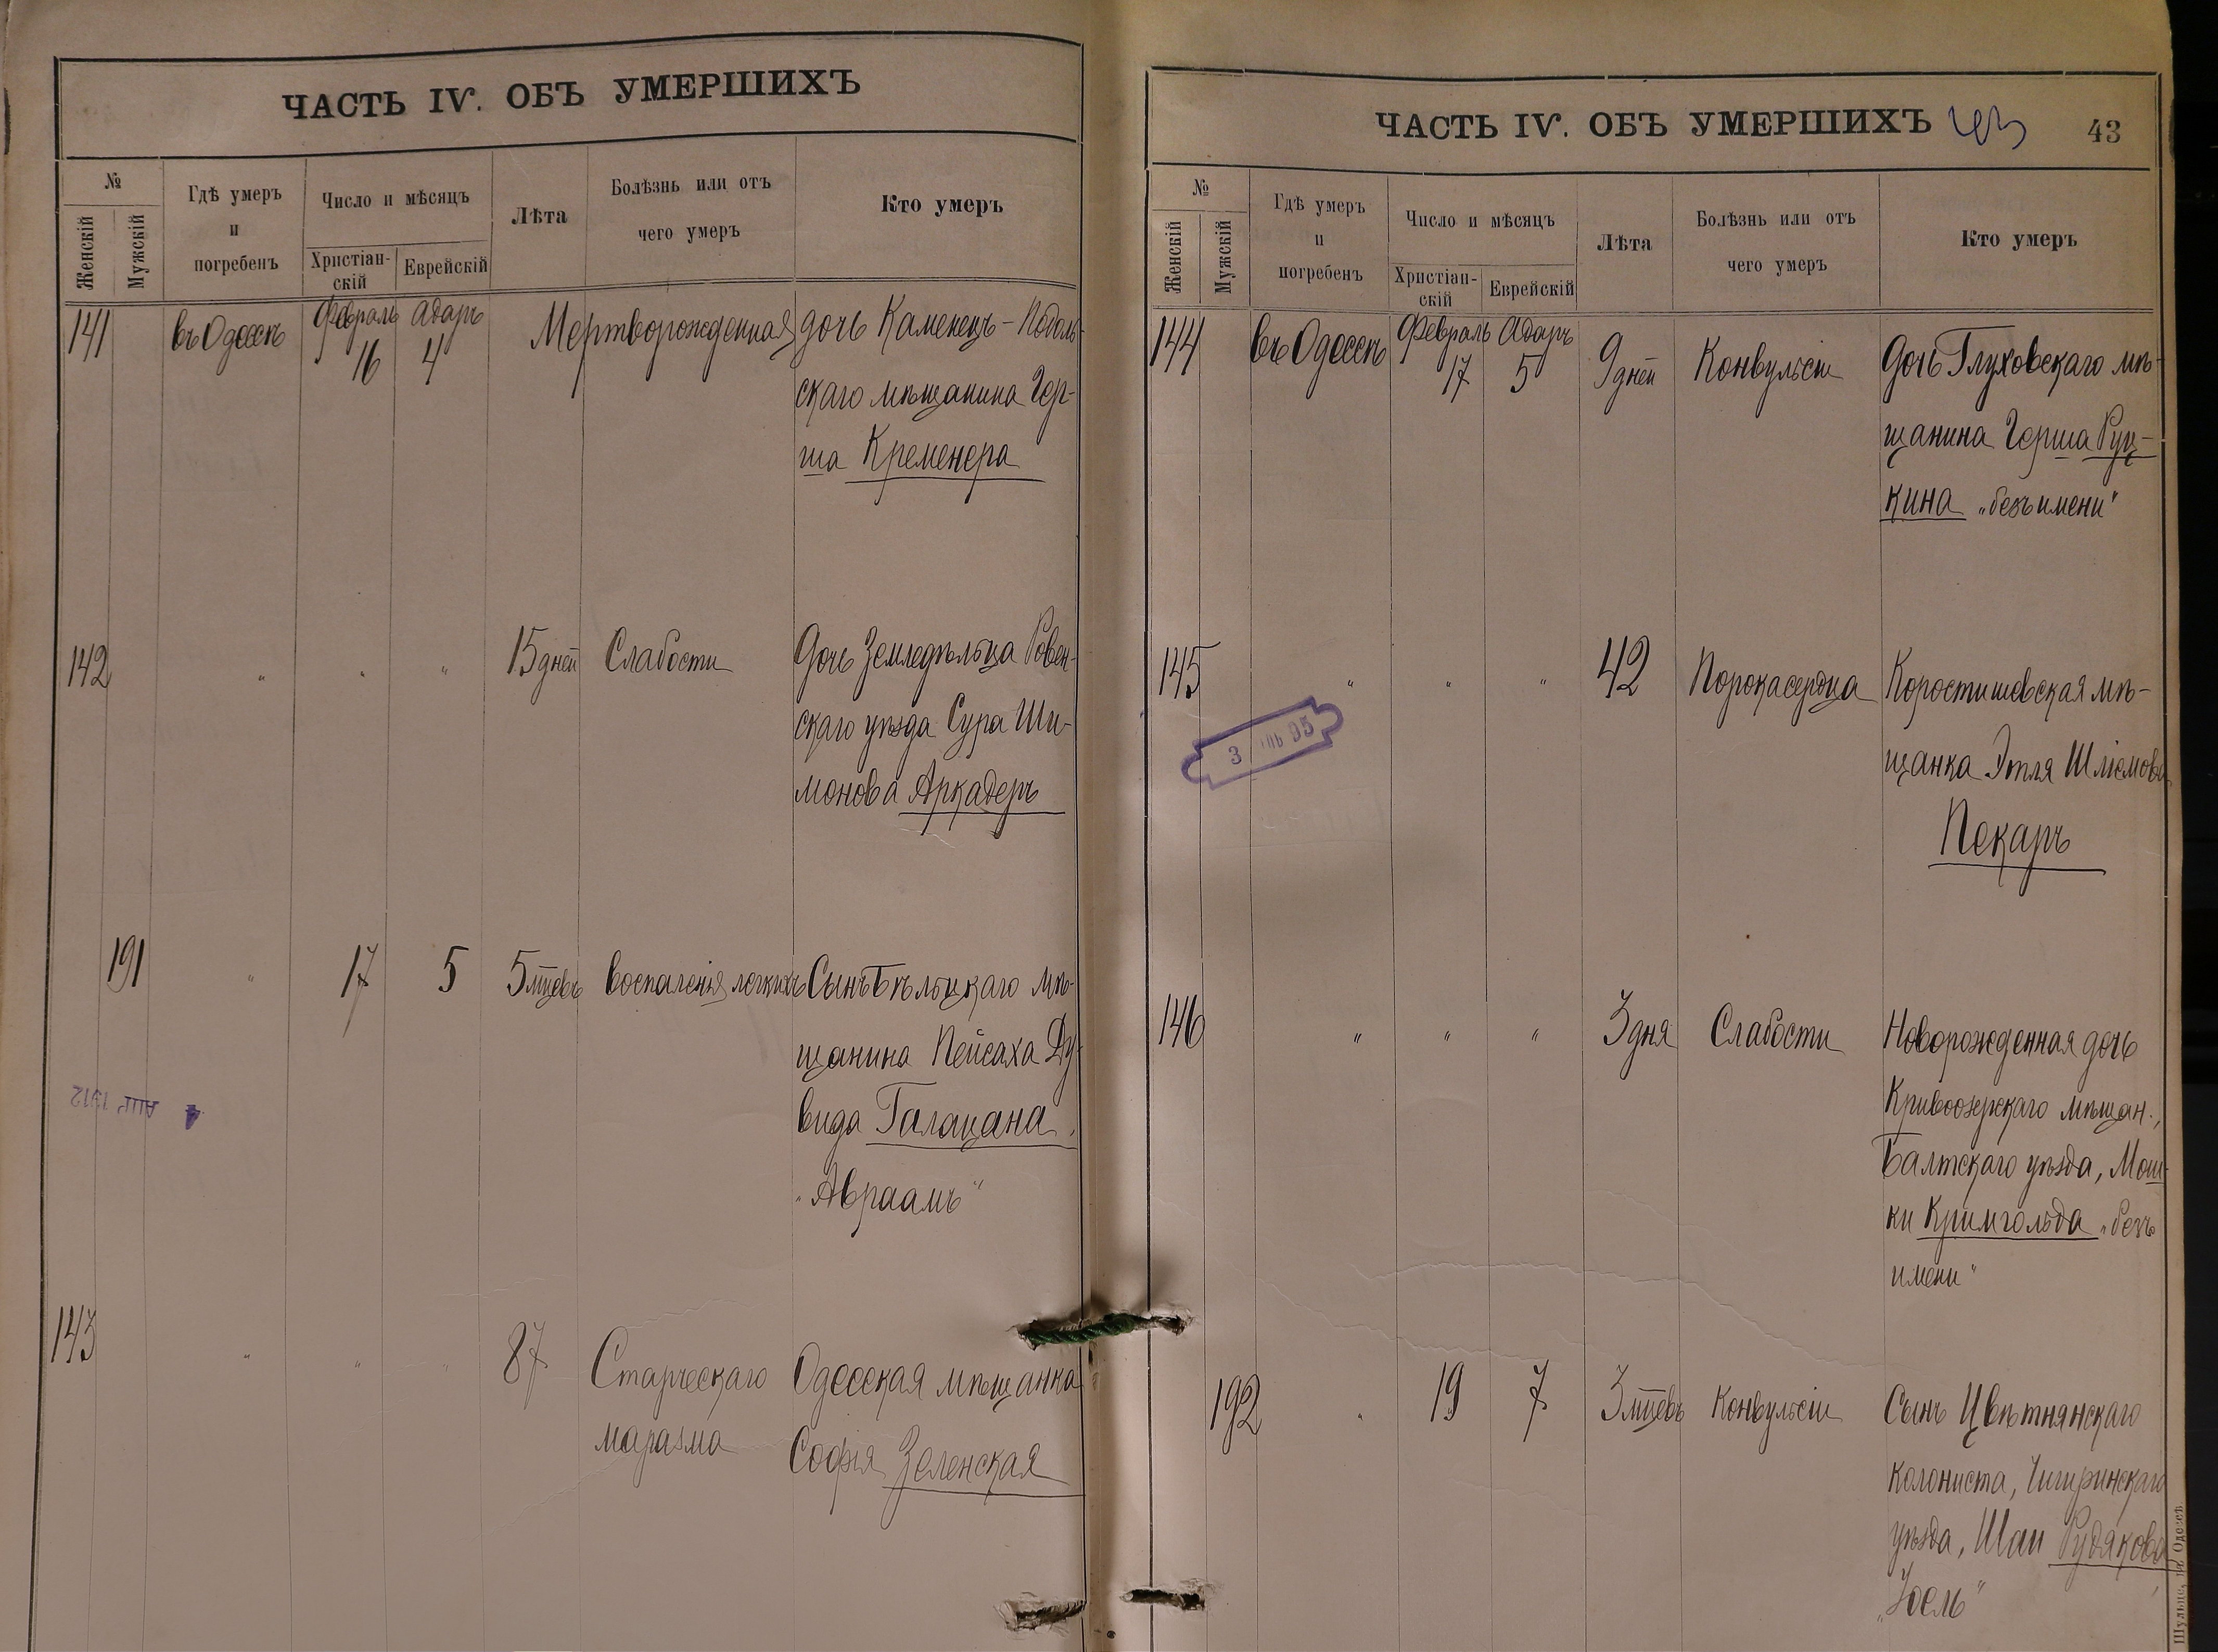 ЧАСТЬ IV. ОБЪ УМЕРШИХЪ
№
Женскій
Мужскій
Гдѣ умеръ
и
погребенъ
Число и мѣсяцъ
Христіан-
скій
Еврейскій
Лѣта
Болѣзнь или отъ
чего умеръ
Кто умеръ
141 въ Одессѣ Февраль 16 Адаръ 4 Мертворожденная дочь Каменецъ-Подоль-
скаго мѣщанина Гер-
ша Кременера
142 " " " 15 дней Слабости Дочь Земледѣльца Ровен-
скаго уѣзда Сура Ши-
монова Аркадеръ
191 " 17 5 5 мцевъ Воспаленія легкихъ Сынъ Бѣльцкаго мѣ-
щанина Пейсаха Ду-
вида Галацана.
"Авраамъ"
4 АПР 1912
143 " " " 87 Старческаго Одесская мѣщанка
маразма София Зеленская
ЧАСТЬ IV. ОБЪ УМЕРШИХЪ 43
№
Женскій
Мужскій
Гдѣ умеръ
и
погребенъ
Число и мѣсяцъ
Христіан-
скій
Еврейскій
Лѣта
Болѣзнь или отъ
чего умеръ
Кто умеръ
144 въ Одессѣ Февраль 17 Адаръ 5 9 дней Конвульсіи Дочь Глуховскаго мѣ-
щанина Герша Руц-
кина "безъ имени"
145 " " " 42 Порока сердца Коростишевская мѣ-
щанка Этля Шлiомова
Пекаръ
3 95
146 " " " 3 дня Слабости Новорожденная дочь
Кривоозерскаго мѣщан.,
Балтскаго уѣзда, Мош-
ки Кримгольда "безъ
имени"
192 " 19 7 3 мцевъ Конвульсіи Сынъ Цвѣтнянскаго
колониста, Чигиринскаго
уѣзда, Шаи Рудякова,
"Іоель"
Шульце, въ Одессѣ